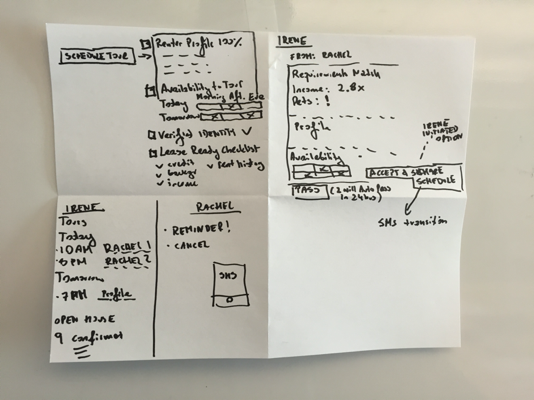 SCHEDULE TOUR
Renter Profile 100%
Availability to Tour
Morning Aft. Eve
Today
Tomorrow
Verified IDENTITY ✓
Lease Ready Checklist
✓ credit ✓ rent history
✓ income
IRENE
FROM: RACHEL
Requirements Match
Income: 2.8x
Pets: !
Profile
IRENE
INITIATED
OPTION
Availability
ACCEPT &
SCHEDULE
PASS (will Auto Pass
in 24 hrs)
SMS transition
IRENE
Tours
Today
·10AM RACHEL 1
RACHEL 2
Tomorrow
Profile
OPEN HOUSE
9 confirmed
RACHEL
· REMINDER!
· CANCEL
SMS